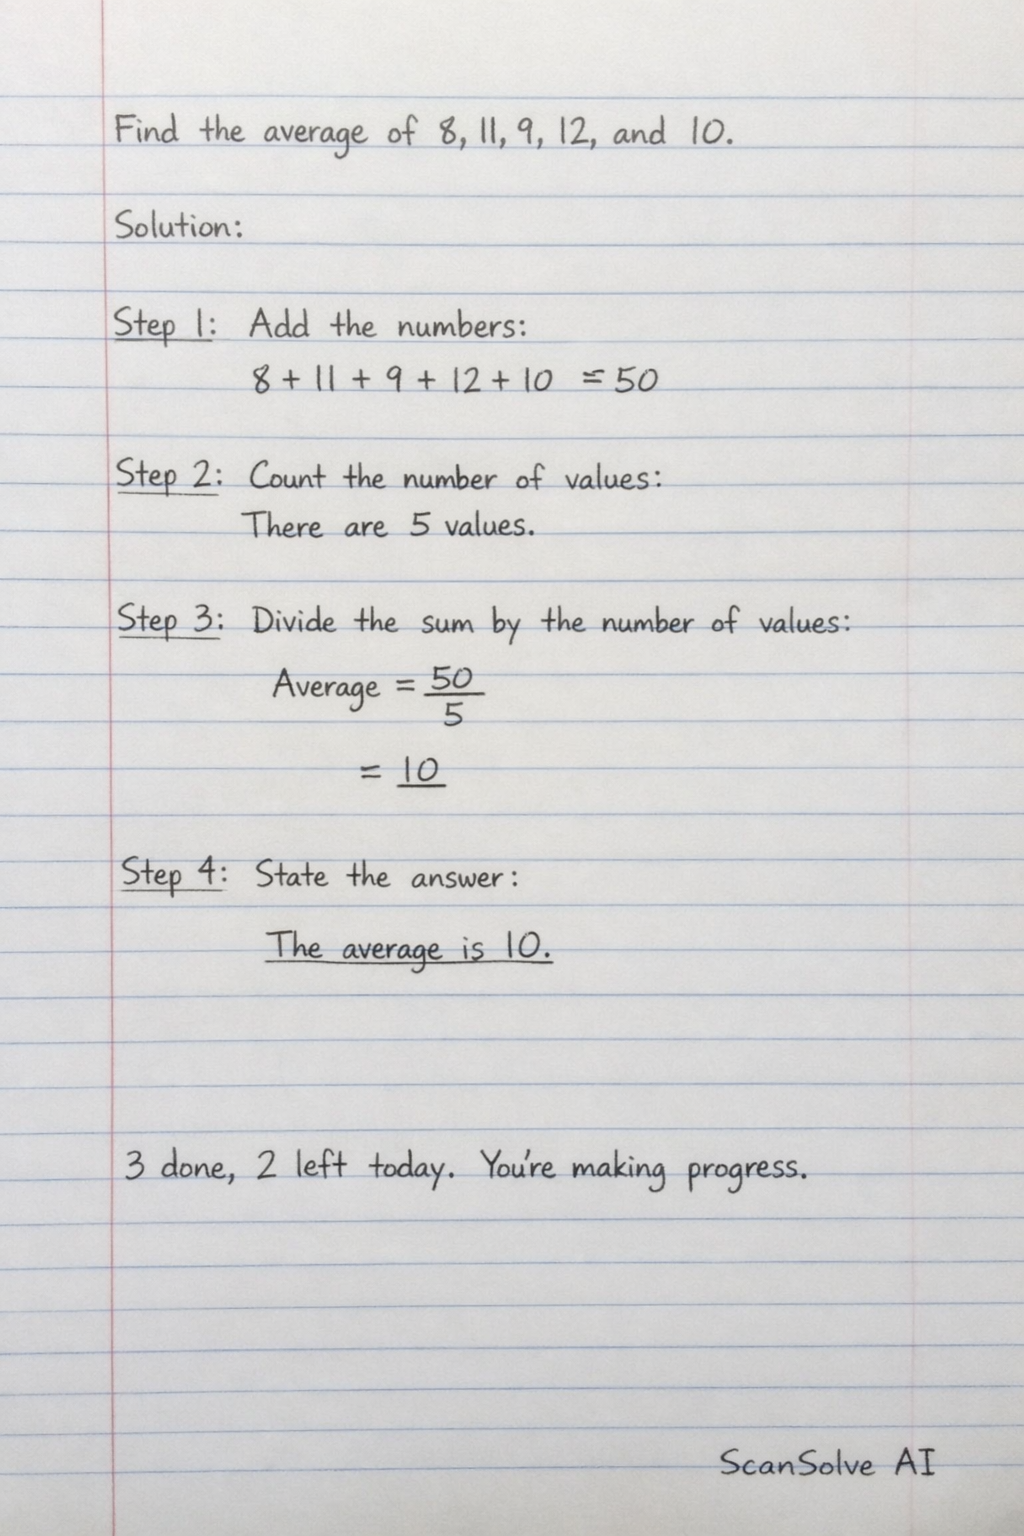 Find the average of 8, 11, 9, 12, and 10.
Solution:
Step 1: Add the numbers:
8 + 11 + 9 + 12 + 10 = 50
Step 2: Count the number of values:
There are 5 values.
Step 3: Divide the sum by the number of values:
Average = 50
5
= 10
Step 4: State the answer:
The average is 10.
3 done, 2 left today. You're making progress.
ScanSolve AI